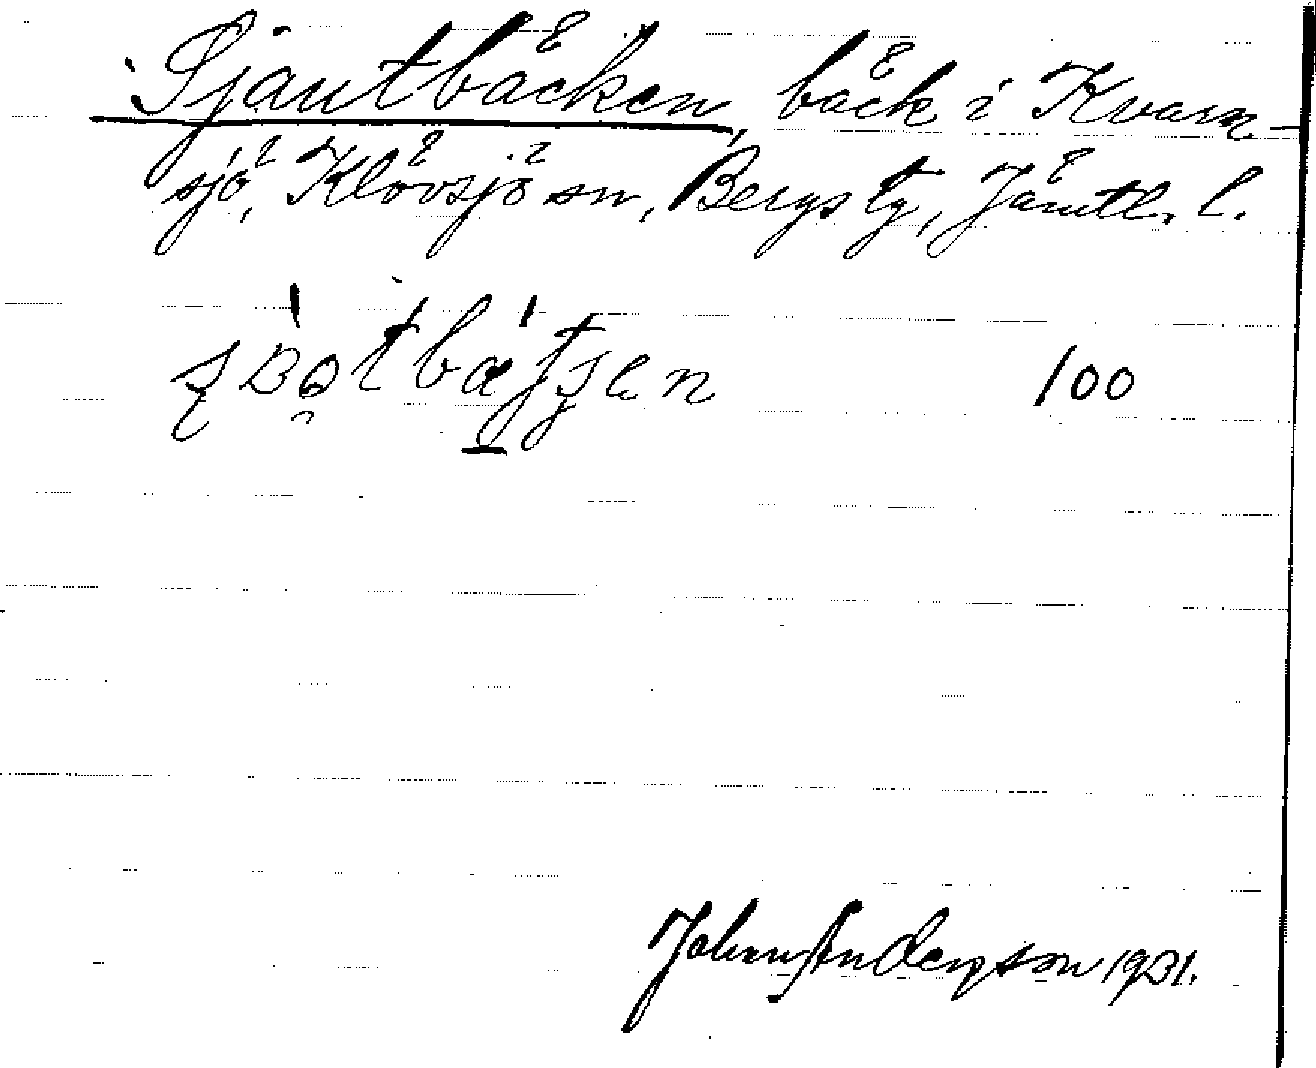 Sjautbäcken, bäck i Kvarn-
sjö, Klövsjö sn, Bergs tg, Jämtl. l.
100
Johan Anderson 1931.